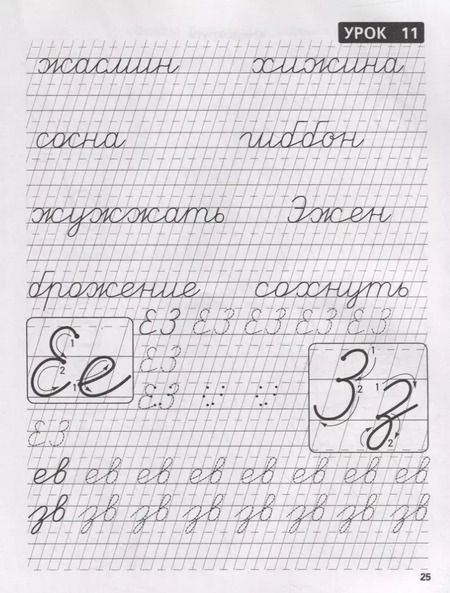 УРОК 11
жасмин хижина
сосна гиббон
жужжать Эжен
брожение сохнуть
ЕЗ ЕЗ ЕЗ ЕЗ ЕЗ
ЕЗ
Ее 1 2 1
ЕЗ
Зз 1 2 1 2
ЕЗ
ев ев ев ев ев ев ев ев
зв зв зв зв зв зв зв зв
25